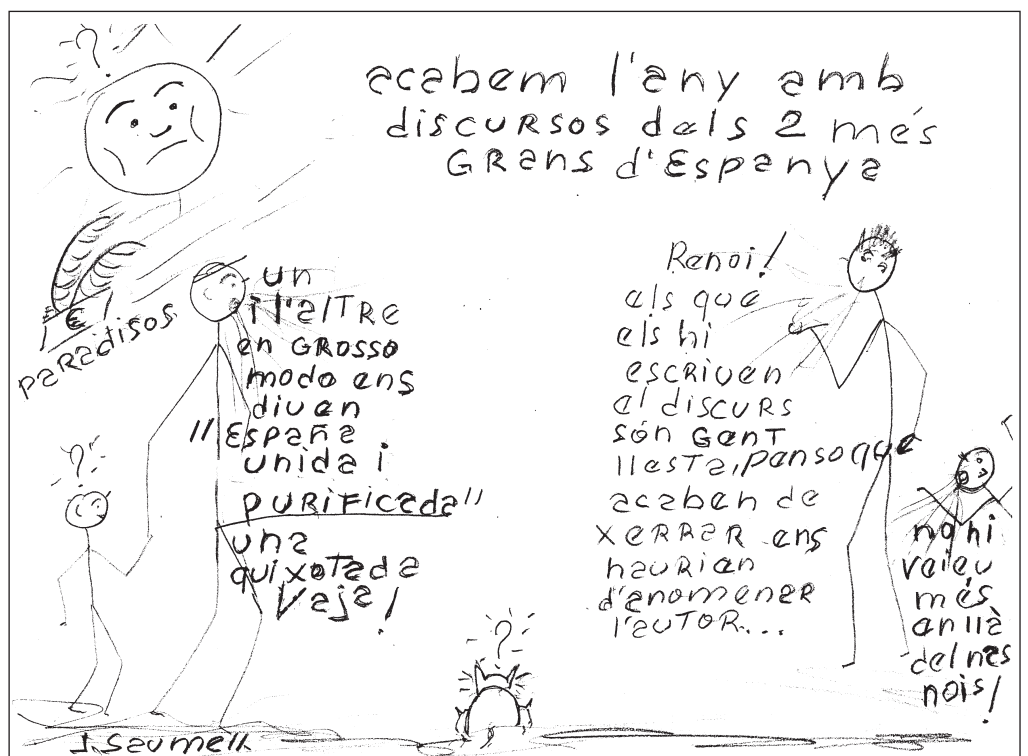 ?
acabem l'any amb
discursos dels 2 més
GRans d'Espanya
€
paradisos
un
i l'alTRe
en GROSSO
modo ens
diuen
"España
unida i
PURiFicada"
una
quixoTada
Vaja!
Renoi!
els que
els hi
escriuen
el discurs
són GenT
llesTa, penso que
acaben de
XeRRaR ens
hauRian
d'anomenar
l'auTOR...
no hi
veieu
més
enllà
del nas
nois!
?
?
J. Saumell